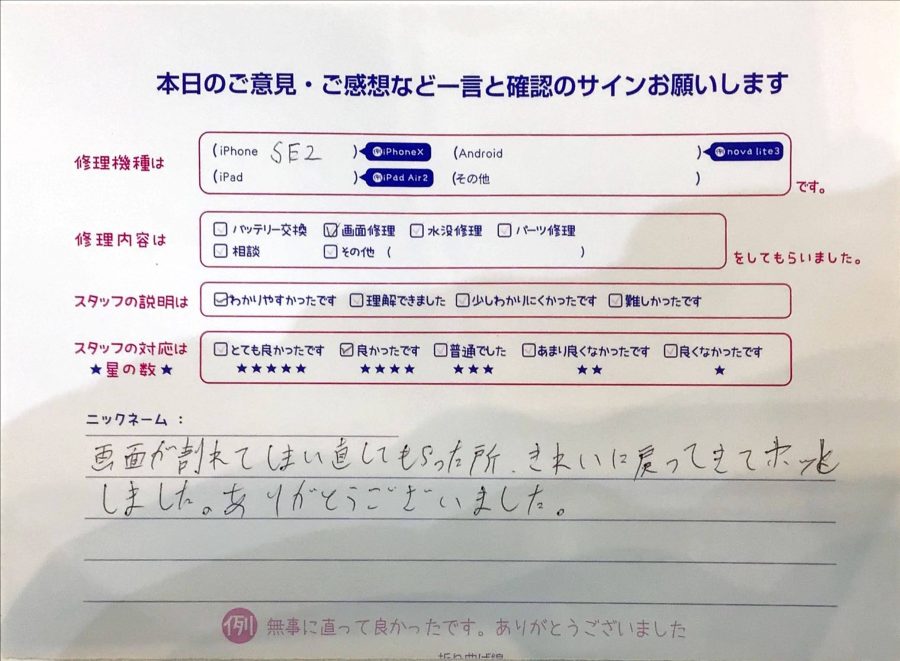 本日のご意見・ご感想など一言と確認のサインお願いします
修理機種は
(iPhone SE2 ) 例iPhoneX (Android ) 例nova lite3
(iPad ) 例iPad Air2 (その他 )
です。
修理内容は
バッテリー交換 画面修理 水没修理 パーツ修理
相談 その他 ( )
をしてもらいました。
スタッフの説明は
わかりやすかったです 理解できました 少しわかりにくかったです 難しかったです
スタッフの対応は
★星の数★
とても良かったです 良かったです 普通でした あまり良くなかったです 良くなかったです
★★★★★ ★★★★ ★★★ ★★ ★
ニックネーム：
画面が割れてしまい直してもらった所、きれいに戻ってきてホッと
しました。ありがとうございました。
例 無事に直って良かったです。ありがとうございました